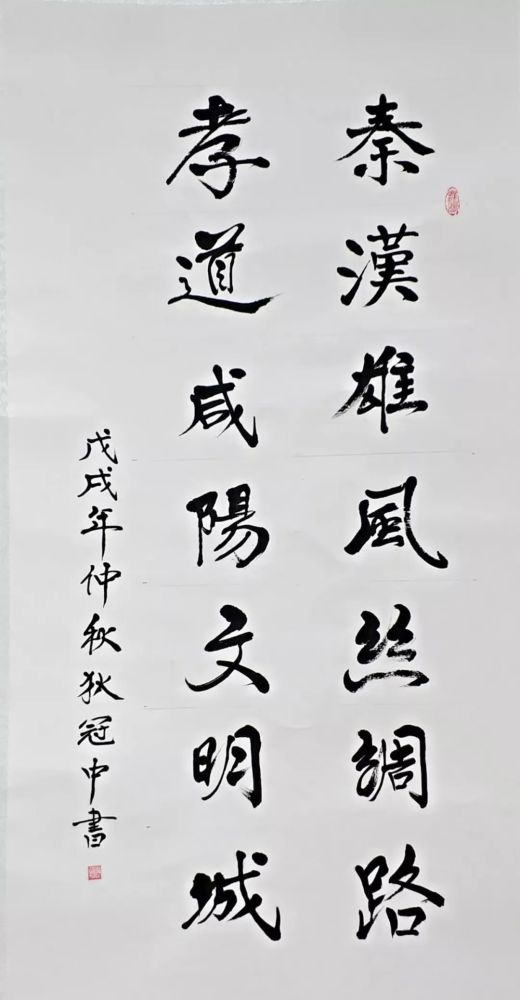 秦漢雄風絲調路
孝道咸陽文明城
戊戌年仲秋狄冠中書